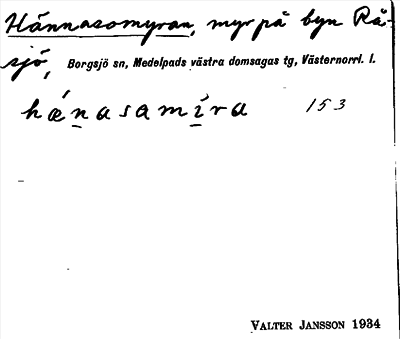 Hännasomyran, myr på byn Rå-
sjö, Borgsjö sn, Medelpads västra domsagas tg, Västernorrl. l.
hænasamíra 153
VALTER JANSSON 1934